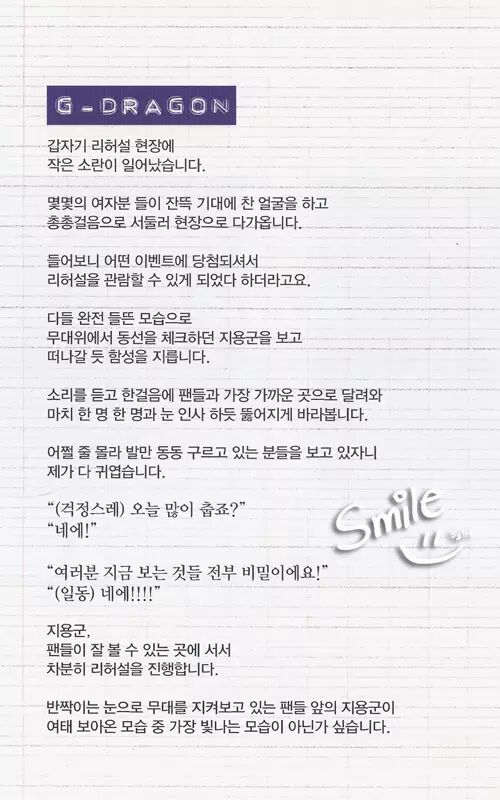 G-DRAGON
갑자기 리허설 현장에
작은 소란이 일어났습니다.
몇몇의 여자분 들이 잔뜩 기대에 찬 얼굴을 하고
총총걸음으로 서둘러 현장으로 다가옵니다.
들어보니 어떤 이벤트에 당첨되셔서
리허설을 관람할 수 있게 되었다 하더라고요.
다들 완전 들뜬 모습으로
무대위에서 동선을 체크하던 지용군을 보고
떠나갈 듯 함성을 지릅니다.
소리를 듣고 한걸음에 팬들과 가장 가까운 곳으로 달려와
마치 한 명 한 명과 눈 인사 하듯 뚫어지게 바라봅니다.
어쩔 줄 몰라 발만 동동 구르고 있는 분들을 보고 있자니
제가 다 귀엽습니다.
“(걱정스레) 오늘 많이 춥죠?”
“네에!”
Smile
“여러분 지금 보는 것들 전부 비밀이에요!”
“(일동) 네에!!!!”
지용군,
팬들이 잘 볼 수 있는 곳에 서서
차분히 리허설을 진행합니다.
반짝이는 눈으로 무대를 지켜보고 있는 팬들 앞의 지용군이
여태 보아온 모습 중 가장 빛나는 모습이 아닌가 싶습니다.